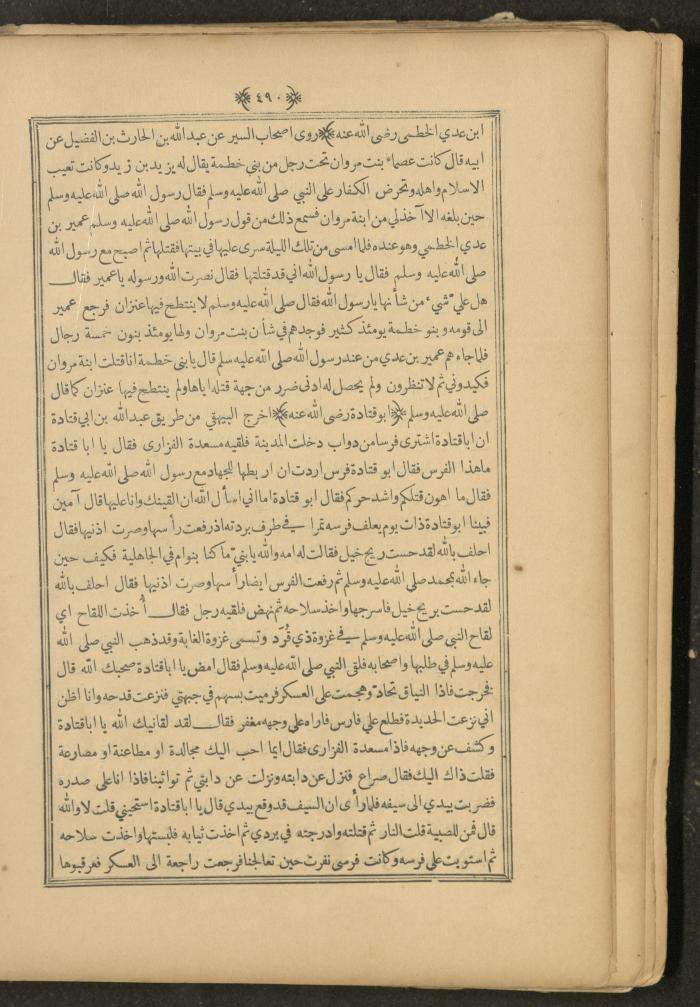 ﴿٤٩٠﴾
ابن عدي الخطمى رضى الله عنه ﴾ روى اصحاب السير عن عبد الله بن الحارث بن الفضيل عن
ابيه قال كانت عصماء بنت مروان تحت رجل من بني خطمة يقال له يزيد بن زيد وكانت تعيب
الاسلام واهله وتحرض الكفار على النبي صلى الله عليه وسلم فقال رسول الله صلى الله عليه وسلم
حين بلغه الا آخذ لي من ابنة مروان فسمع ذلك من قول رسول الله صلى الله عليه وسلم عمير بن
عدي الخطمي وهو عنده فلما امسى من تلك الليلة سرى عليها في بيتها فقتلها ثم اصبح مع رسول الله
صلى الله عليه وسلم فقال يا رسول الله اني قد قتلتها فقال نصرت الله ورسوله يا عمير فقال
هل علي شيء من شأنها يا رسول الله فقال صلى الله عليه وسلم لا ينتطح فيها عنزان فرجع عمير
الى قومه وبنو خطمة يومئذ كثير فوجدهم في شأن بنت مروان ولها يومئذ بنون خمسة رجال
فلما جاءهم عمير بن عدي من عند رسول الله صلى الله عليه سلم قال يا بنى خطمة انا قتلت ابنة مروان
فكيدوني ثم لا تنظرون ولم يحصل له ادنى ضرر من جهة قتله اياها ولم ينتطح فيها عنزان كما قال
صلى الله عليه وسلم ﴿ ابو قتادة رضى الله عنه ﴾ اخرج البيهقي من طريق عبد الله بن ابي قتادة
ان ابا قتادة اشترى فرسا من دواب دخلت المدينة فلقيه مسعدة الفزارى فقال يا ابا قتادة
ما هذا الفرس فقال ابو قتادة فرس اردت ان اربطها للجهاد مع رسول الله صلى الله عليه وسلم
فقال ما اهون قتلكم واشد حركم فقال ابو قتادة اما اني اسأل الله ان القينك وانا عليها قال آمين
فبينا ابو قتادة ذات يوم يعلف فرسه تمرا في طرف بردته اذ رفعت رأسها وصرت اذنيها فقال
احلف بالله لقد حست ريح خيل فقالت له امه والله يا بني ما كنا بنوام في الجاهلية فكيف حين
جاء الله بمحمد صلى الله عليه وسلم ثم رفعت الفرس ايضا رأسها وصرت اذنيها فقال احلف بالله
لقد حست بريح خيل فاسرجها واخذ سلاحه ثم نهض فلقيه رجل فقال أُخذت اللقاح اي
لقاح النبي صلى الله عليه وسلم في غزوة ذي قُرَد وتسمى غزوة الغابة وقد ذهب النبي صلى الله
عليه وسلم في طلبها واصحابه فلقى النبي صلى الله عليه وسلم فقال امض يا ابا قتادة صحبك الله قال
فخرجت فاذا النياق تحاد وهجمت على العسكر فرميت بسهم في جبهتي فنزعت قدحه وانا اظن
اني نزعت الحديدة فطلع علي فارس فاراه على وجهه مغفر فقال لقد لقانيك الله يا ابا قتادة
وكشف عن وجهه فاذا مسعدة الفزارى فقال ايما احب اليك مجالدة او مطاعنة او مصارعة
فقلت ذاك اليك فقال صراع فنزل عن دابته ونزلت عن دابتي ثم تواثبنا فاذا انا على صدره
فضربت بيدي الى سيفه فلما رأى ان السيف قد وقع بيدي قال يا ابا قتادة استحيني قلت لا والله
قال فمن للصبية قلت النار ثم قتلته وادرجته في بردي ثم اخذت ثيابه فلبستها واخذت سلاحه
ثم استويت على فرسه وكانت فرسى نفرت حين تعالجنا فرجعت راجعة الى العسكر فعرقبوها